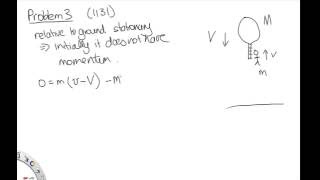 Problem 3 (1131)
relative to ground stationary
⇒ initially it does not have
momentum.
0 = m (v-V) - M
M
V
↑ v
m